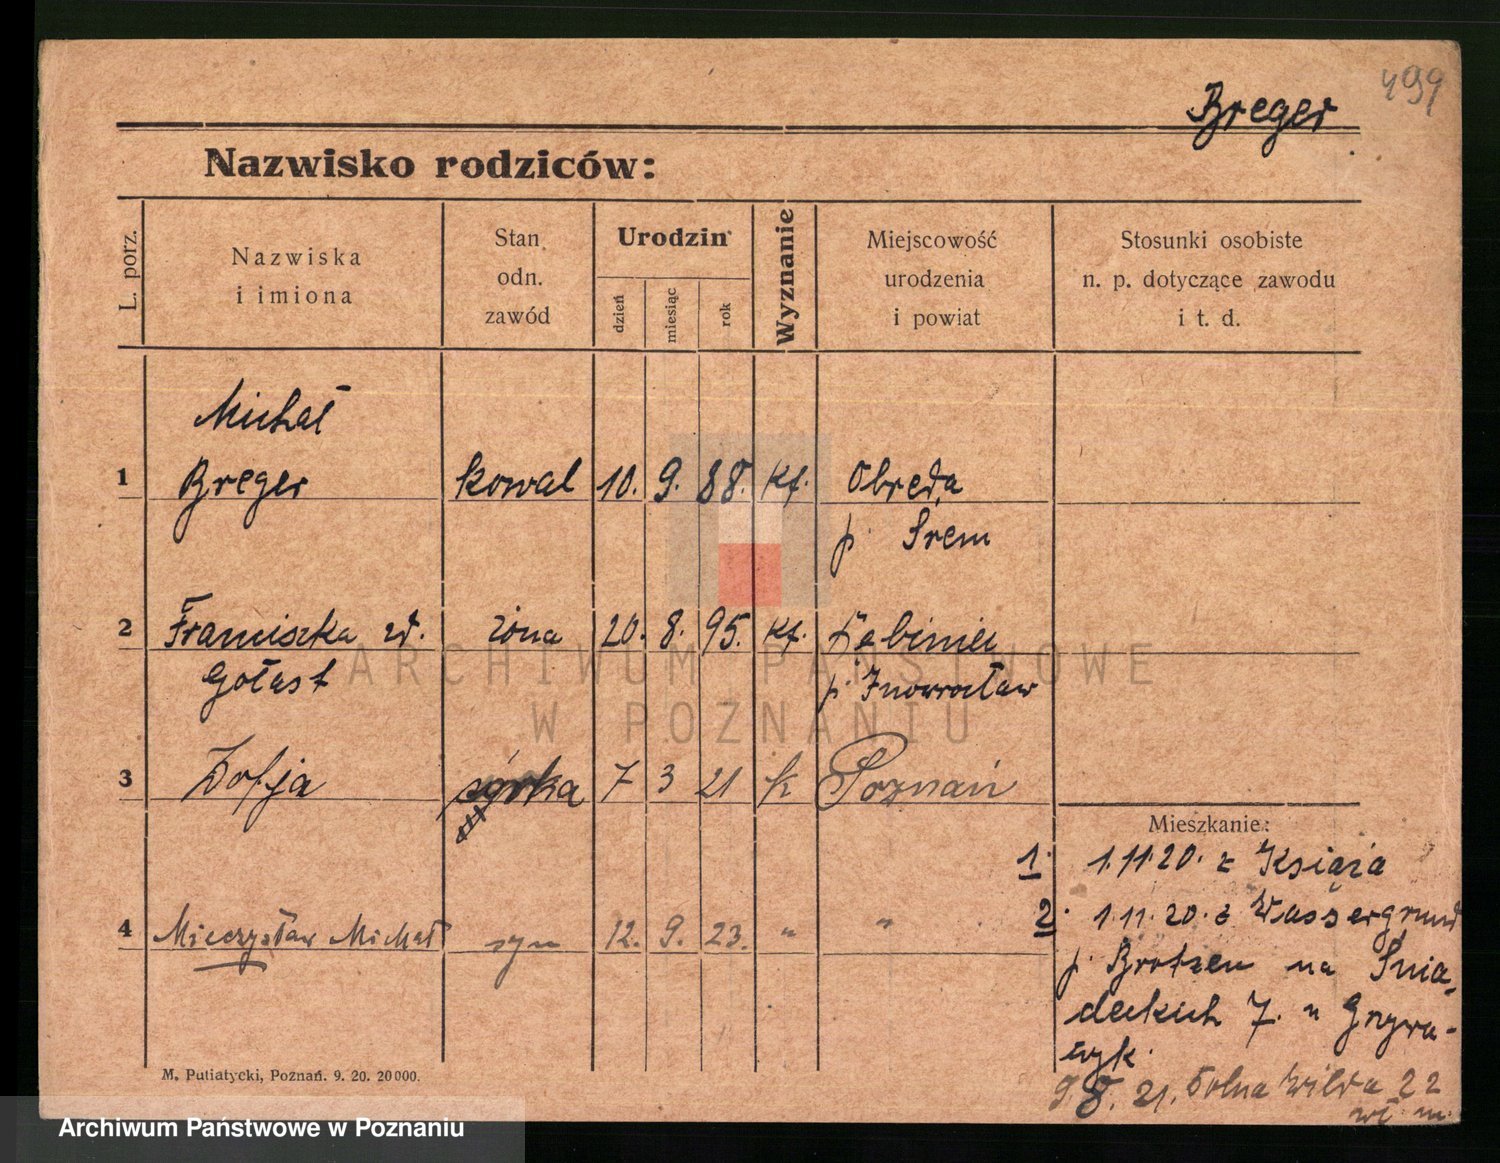 499
Breger
Nazwisko rodziców:
L. porz.
Nazwiska
i imiona
Stan
odn.
zawód
Urodzin
dzień
miesiąc
rok
Wyznanie
Miejscowość
urodzenia
i powiat
Stosunki osobiste
n. p. dotyczące zawodu
i t. d.
Michał
1 Breger kowal 10. 9. 88. kt.
p. Śrem
2 Franciszka żona 20. 8. 95. kt.
p. Inowrocław
3 Zofja córka 7 3 21 k Poznań
Mieszkanie:
1. 1.11.20. z Książa
4 Mieczysław Michał syn 12. 9. 23. " "
2. 1.11.20. z Wassergrund
p. Brotzen na Śnia-
deckich 7. u Grzywa-
czyk.
9.8.21. Dolna Wilda 22
M. Putiatycki, Poznań. 9. 20. 20000.
ARCHIWUM PAŃSTWOWE
W POZNANIU
Archiwum Państwowe w Poznaniu